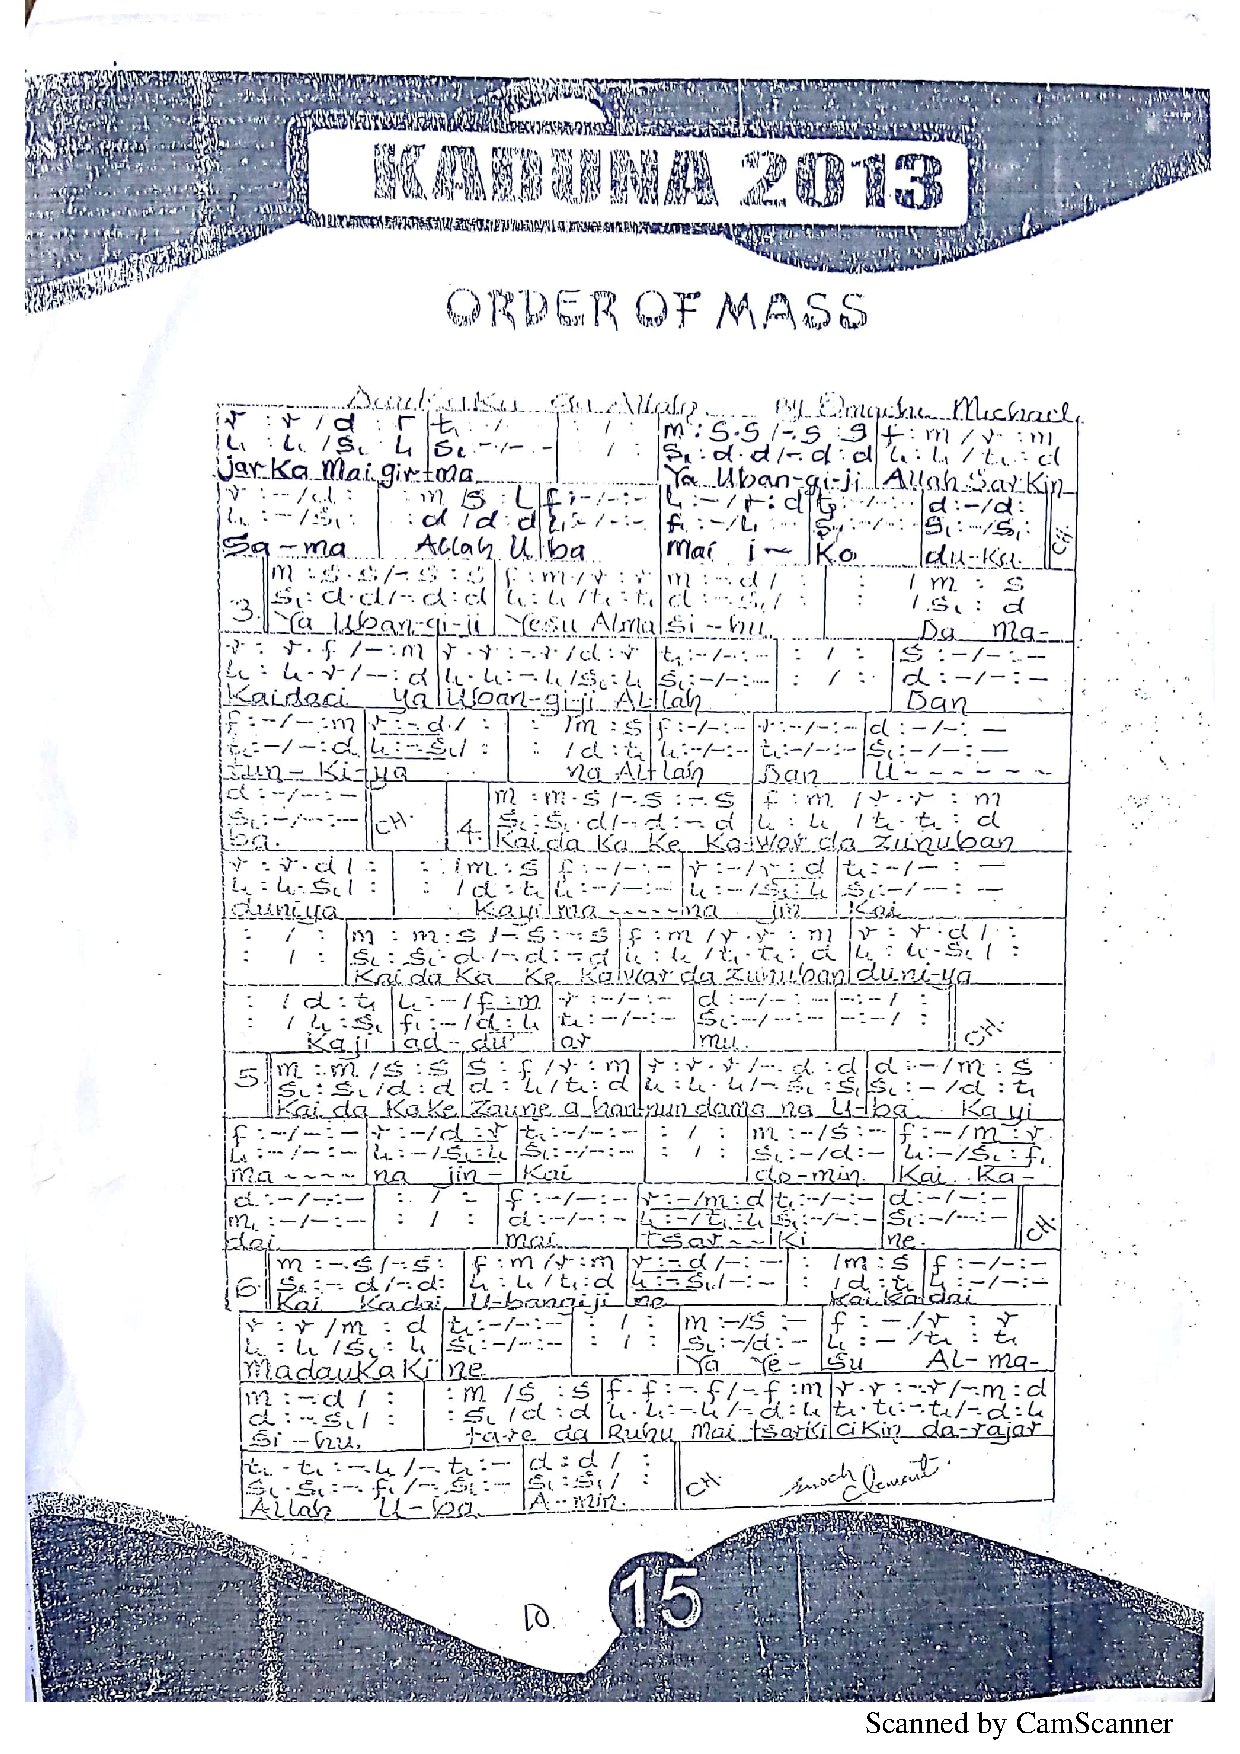 KADUNA 2013
ORDER OF MASS
Allah By Michael
r : r / d : r t₁ : / : / : m : s.s /-.s : s f : m / r : m
l₁ : l₁ / s₁ : l₁ s₁ -:-/-- : / : s₁ : d.d /-.d : d l₁ : l₁ / t₁ : d
jar Ka Mai gir-ma Ya Uban-gi-ji Allah Sarkin
r : - / d : : m / s : l f : - / - : - l₁ : - / r : d t₁ : - / - : - d : - / d :
l₁ : - / s₁ : : d / d : d l₁ : - / - : - f₁ : - / l₁ s₁ : - / - : - s₁ : - / s₁ : CH.
Sa-ma Allah Uba Mai i- Ko du-ka.
3. m : s.s /-.s : s f : m / r : r m : -.d / : : / m : s
s₁ : d.d /-.d : d l₁ : l₁ / t₁ : t₁ d : -.s₁ / : / s₁ : d
Ya Uban-gi-ji Yesu Almasi-hu. Da ma-
r : r.f / - : m r.r : -.r / d : r t₁ : - / - : - : / : s : - / - : -
l₁ : l₁.r / - : d l₁.l₁ : -.l₁ / s₁ : l₁ s₁ : - / - : - : / : d : - / - : -
Kai daci ya Uban-gi-ji Allah Dan
f : - / - : m r : -.d / : : / m : s f : - / - : - r : - / - : - d : - / - : -
t₁ : - / - : d l₁ : -.s₁ / : : / d : t₁ l₁ : - / - : - t₁ : - / - : - s₁ : - / - : -
tun-Ki-ya na Allah Dan U - - - - - -
d : - / - : - m : m.s /-.s : -.s f : m / r.r : m
s₁ : - / - : - CH. 4. s₁ : s₁.d /-.d : -.d l₁ : l₁ / t₁.t₁ : d
ba. Kai da Ka Ke Kawar da zunuban
r : r.d / : : / m : s f : - / - : - r : - / r : d t₁ : - / - : -
l₁ : l₁.s₁ / : : / d : t₁ l₁ : - / - : - l₁ : - / s₁ : l₁ s₁ : - / - : -
duniya Kayi ma - - - - na jin Kai
: / : m : m.s /-.s : -.s f : m / r.r : m r : r.d / :
: / : s₁ : s₁.d /-.d : -.d l₁ : l₁ / t₁.t₁ : d l₁ : l₁.s₁ / :
Kai da Ka Ke Kawar da zunuban duni-ya
: / d : t₁ l₁ : - / f : m r : - / - : - d : - / - : - - : - / :
: / l₁ : s₁ f₁ : - / d : l₁ t₁ : - / - : - s₁ : - / - : - - : - / : CH.
Kaji ad-du' ar mu.
5. m : m / s : s s : f / r : m r : r.r /-.d : d d : - / m : s
s₁ : s₁ / d : d d : l₁ / t₁ : d l₁ : l₁.l₁ /-.s₁ : s₁ s₁ : - / d : t₁
Kai da Ka Ke zaune a hannun dama na U-ba. Kayi
f : - / - : - r : - / d : r t₁ : - / - : - : / : m : - / s : - f : - / m : r
l₁ : - / - : - l₁ : - / s₁ : l₁ s₁ : - / - : - : / : s₁ : - / d : - l₁ : - / s₁ : f₁
ma - - - - na jin- Kai do-min. Kai Ka-
d : - / - : - : / : f : - / - : - r : - / m : d t₁ : - / - : - d : - / - : -
m₁ : - / - : - : / : d : - / - : - l₁ : - / t₁ : l₁ s₁ : - / - : - s₁ : - / - : - CH.
dai. mai tsar--Ki ne.
6. m : -.s /-.s : f : m / r : m r : -.d / - : - : / m : s f : - / - : -
s₁ : -.d /-.d : l₁ : l₁ / t₁ : d l₁ : -.s₁ / - : - : / d : t₁ l₁ : - / - : -
Kai Kadai U-bangiji ne Kai Kadai
r : r / m : d t₁ : - / - : - : / : m : - / s : - f : - / r : r
l₁ : l₁ / s₁ : l₁ s₁ : - / - : - : / : s₁ : - / d : - l₁ : - / t₁ : t₁
madauKaKi ne. Ya Ye-su Al-ma-
m : -.d / : : m / s : s f.f : -.f /-.f : m r.r : -.r /-.m : d
d : -.s₁ / : : s₁ / d : d l₁.l₁ : -.l₁ /-.d : l₁ t₁.t₁ : -.t₁ /-.d : l₁
si-hu. ta-re da Ruhu mai tsarki ciKin da-rajar
t₁.t₁ : -.l₁ /-.t₁ : - d : d / :
s₁.s₁ : -.f₁ /-.s₁ : - s₁ : s₁ / : CH. Enoch Clement.
Allah U-ba A-min.
15
10
Scanned by CamScanner